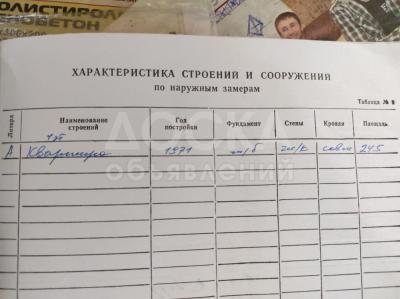 ПОЛИСТИРОЛ
НОБЕТОН
ХАРАКТЕРИСТИКА СТРОЕНИЙ И СООРУЖЕНИЙ
по наружным замерам
Таблица № 9
Литера Наименование строений Год постройки Фундамент Стены Кровля Площадь
4 эт
А Квартира 1971 ж/б совм 245
ДОСКА
объявлений